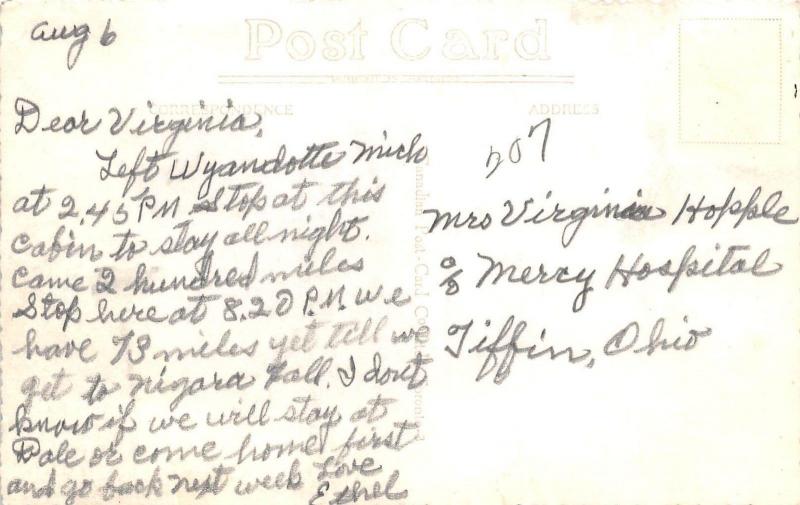 Aug 6
Post Card
CORRESPONDENCE
ADDRESS
Dear Virginia,
Left Wyandotte Mich
at 2.45 P.M. Stop at this
cabin to stay all night.
came 2 hundred miles
Stop here at 8.20 P.M. we
have 73 miles yet till we
get to Nigara Fall. I dont
know if we will stay at
Dale or come home first
and go back next week Love
Ethel
207
Mrs Virginia Hopple
c/o Mercy Hospital
Tiffin, Ohio
Canadian Post Card Co